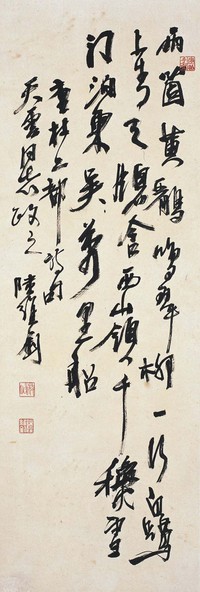 兩箇黄鸝鳴翠柳一行白鷺
上青天牕含西嶺千穐雪
門泊東吴萬里船
杜工部詩
天雲同志政之 陸維釗